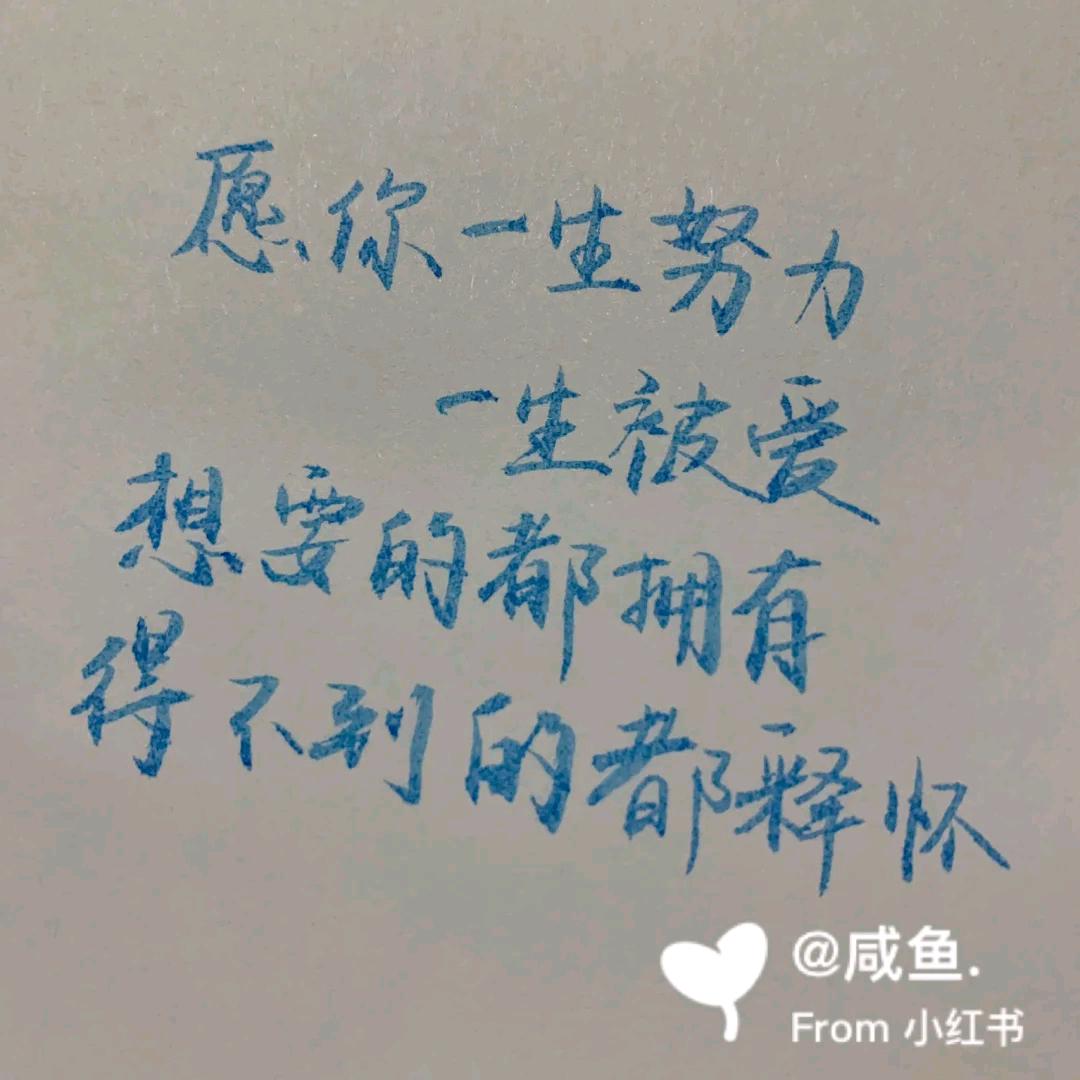 愿你一生努力
一生被爱
想要的都拥有
得不到的都释怀
@咸鱼.
From 小红书